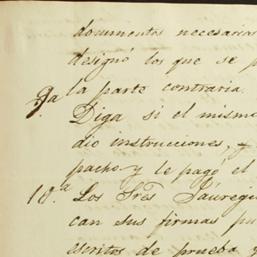 documentos necesarios
designó los que se p
9a la parte contraria.
Diga si el mismo
dio instrucciones, y
pacho y le pagó el
10.a Los Sres Jáuregui
can sus firmas pu
escritos de prueba y